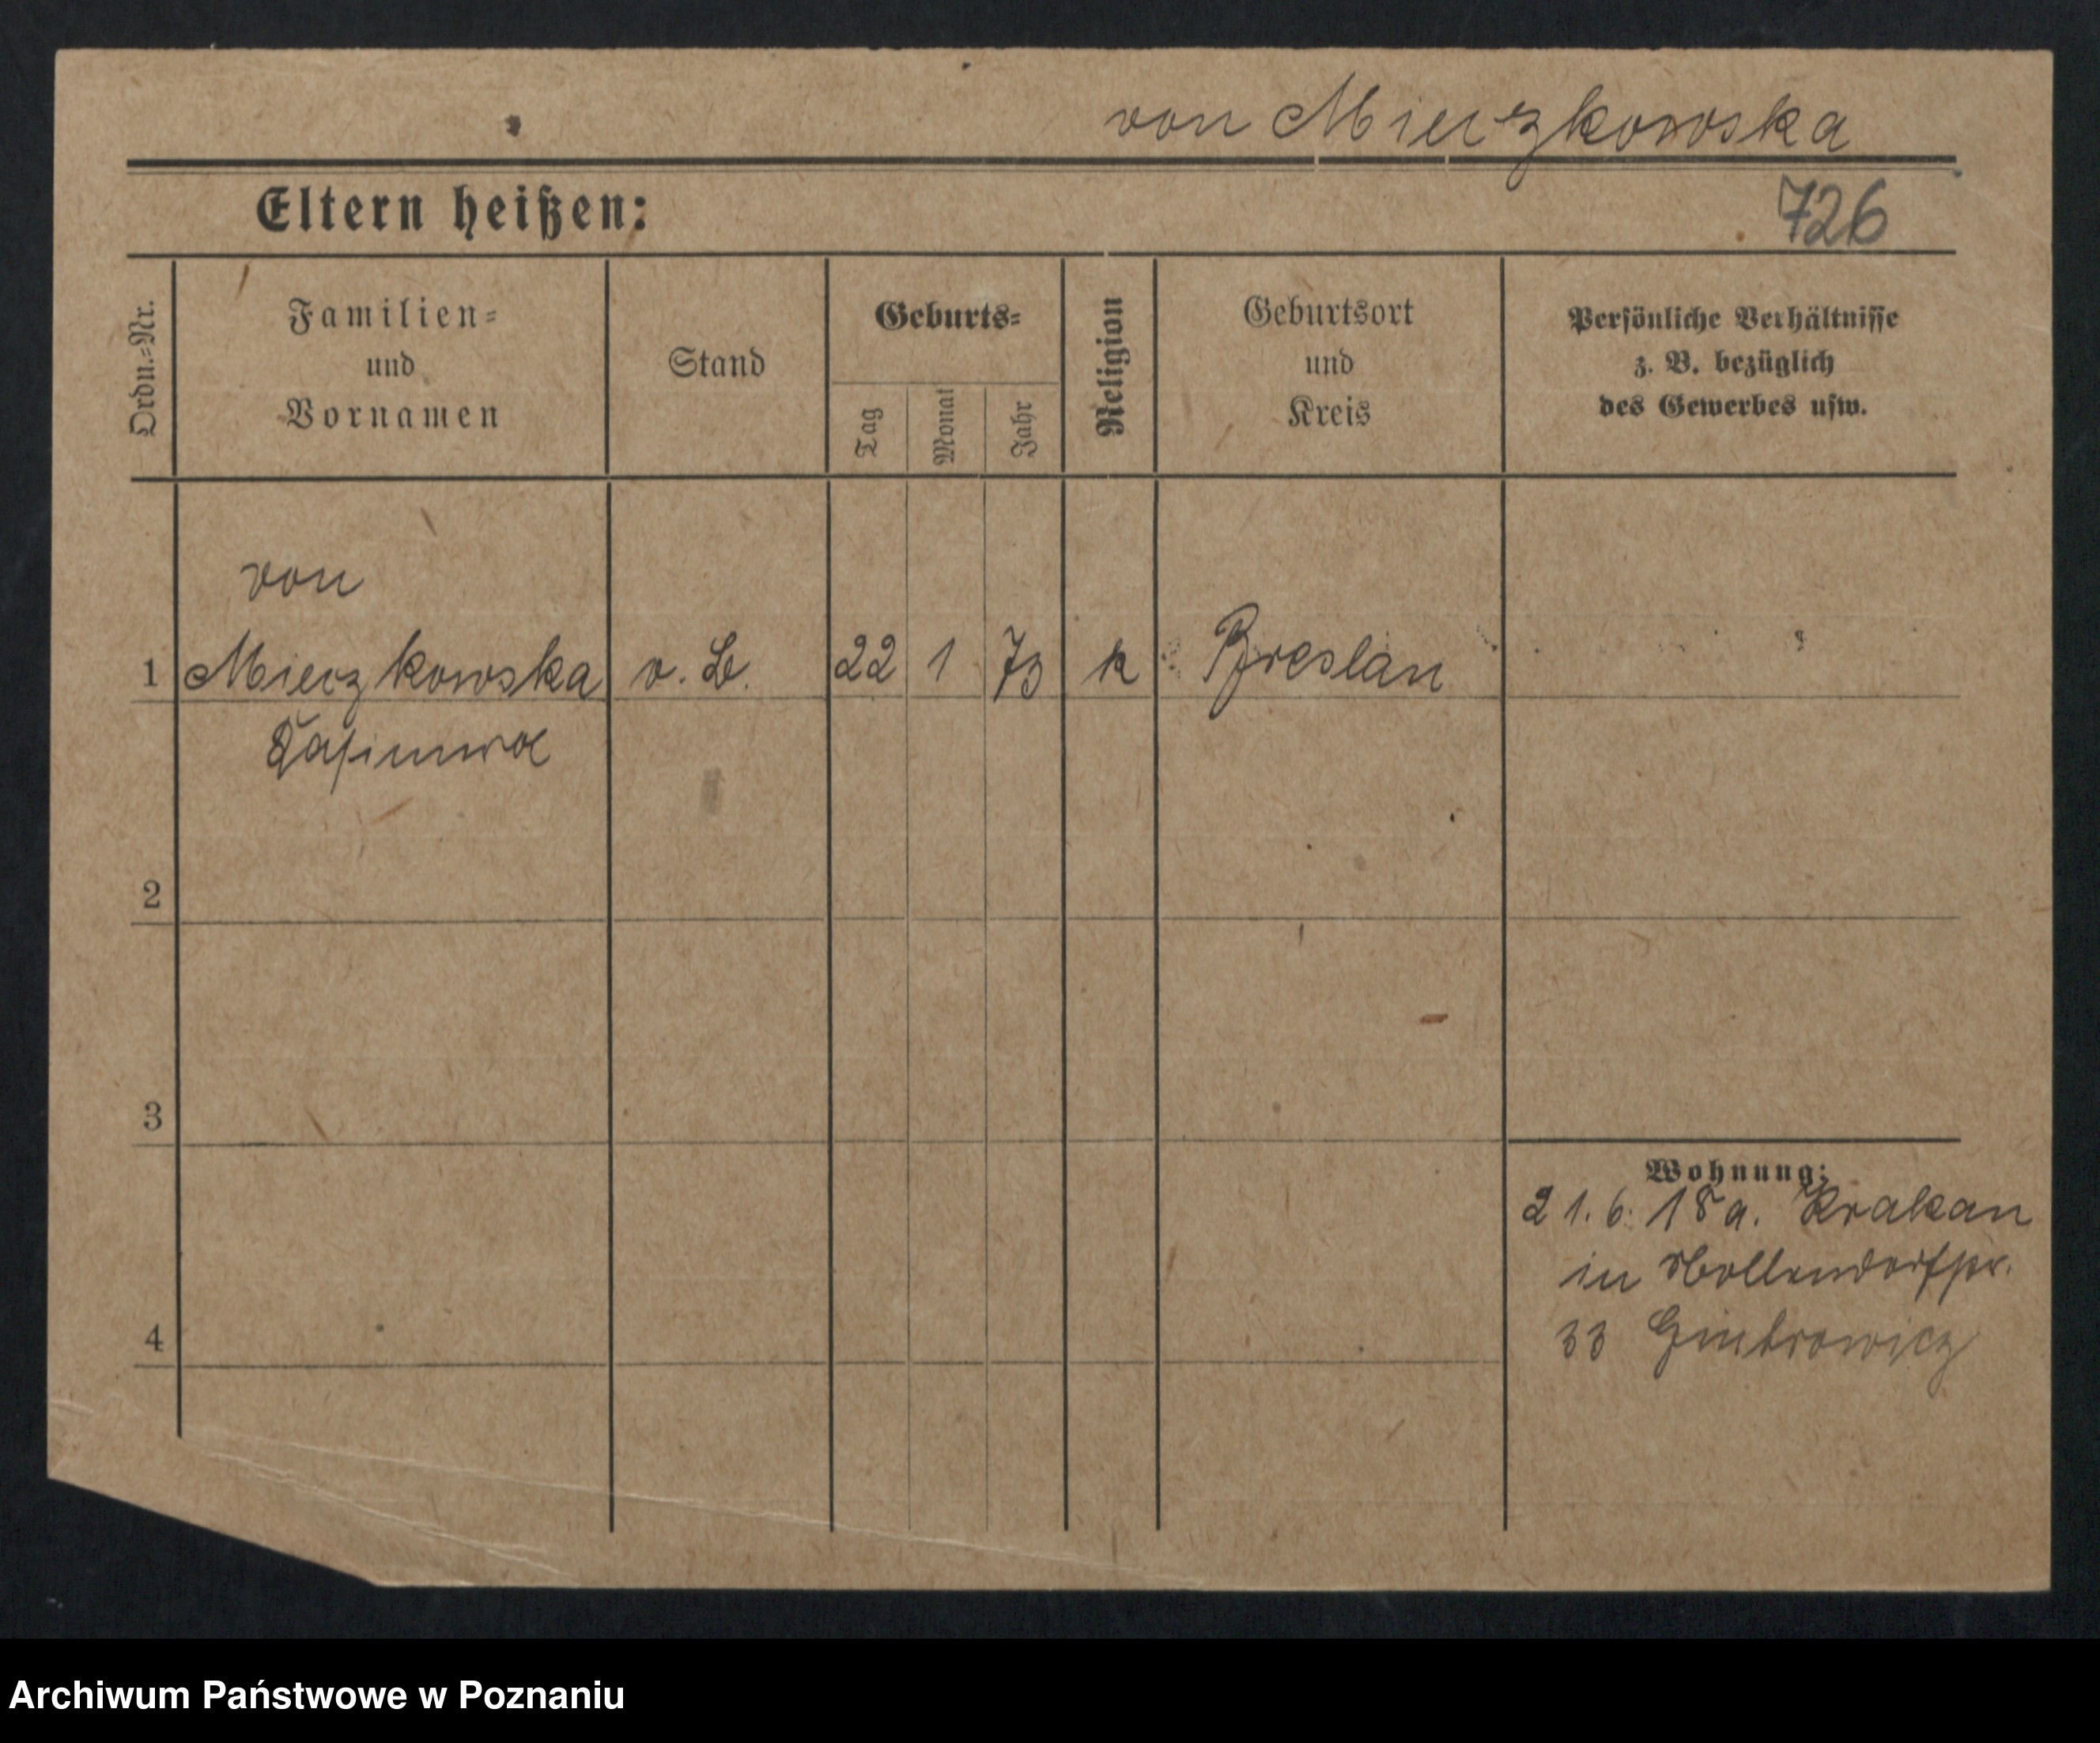 von Mieczkowska
Eltern heißen:
726
Ordn.=Nr.
Familien=
und
Vornamen
Stand
Geburts=
Tag
Monat
Jahr
Religion
Geburtsort
und
Kreis
Persönliche Verhältnisse
z. B. bezüglich
des Gewerbes usw.
von
1 Mieczkowska o. B. 22 1 73 k Breslau
Kasimira
2
3
4
Wohnung:
21. 6. 18 a. Krakau
in
33
Archiwum Państwowe w Poznaniu